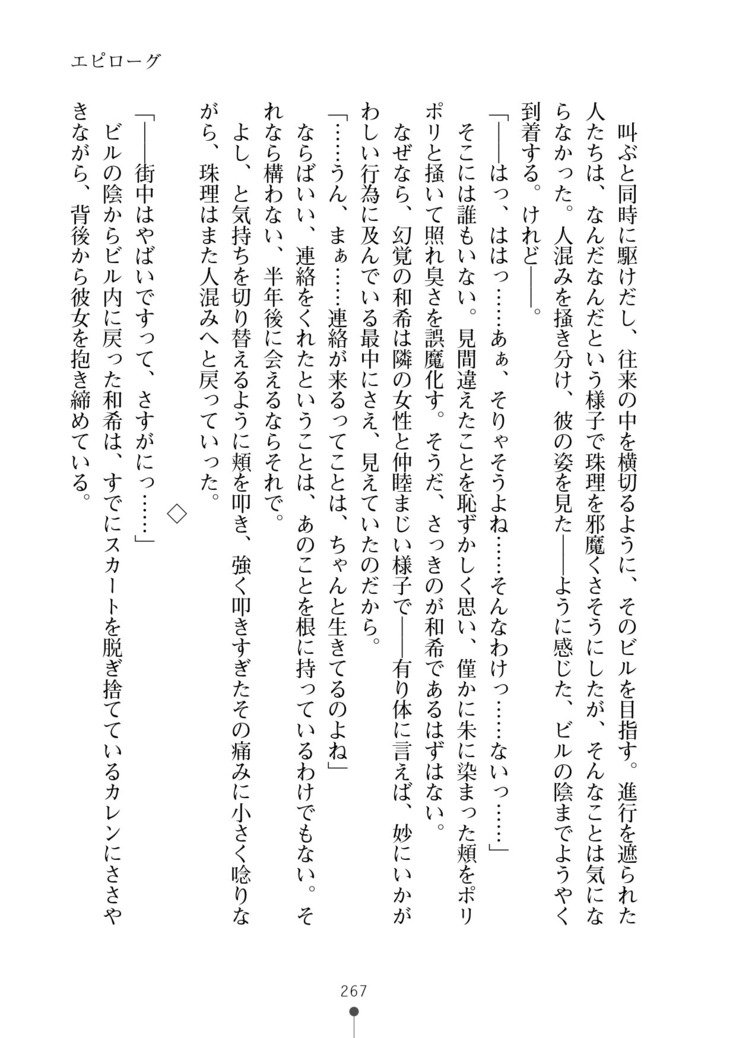 エピローグ
　叫ぶと同時に駆けだし、往来の中を横切るように、そのビルを目指す。進行を遮られた
人たちは、なんだなんだという様子で珠理を邪魔くさそうにしたが、そんなことは気にな
らなかった。人混みを掻き分け、彼の姿を見た――ように感じた、ビルの陰までようやく
到着する。けれど――。
「――はっ、ははっ……あぁ、そりゃそうよね……そんなわけっ……ないっ……」
　そこには誰もいない。見間違えたことを恥ずかしく思い、僅かに朱に染まった頬をポリ
ポリと掻いて照れ臭さを誤魔化す。そうだ、さっきのが和希であるはずはない。
　なぜなら、幻覚の和希は隣の女性と仲睦まじい様子で――有り体に言えば、妙にいかが
わしい行為に及んでいる最中にさえ、見えていたのだから。
「……うん、まぁ……連絡が来るってことは、ちゃんと生きてるのよね」
　ならばいい、連絡をくれたということは、あのことを根に持っているわけでもない。そ
れなら構わない、半年後に会えるならそれで。
　よし、と気持ちを切り替えるように頬を叩き、強く叩きすぎたその痛みに小さく唸りな
がら、珠理はまた人混みへと戻っていった。
◇
「――街中はやばいですって、さすがにっ……」
　ビルの陰からビル内に戻った和希は、すでにスカートを脱ぎ捨てているカレンにささや
きながら、背後から彼女を抱き締めている。
267